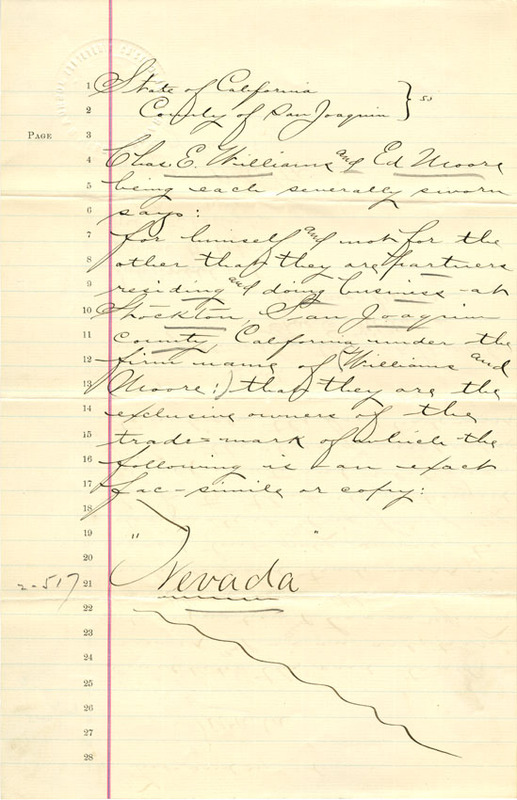 1 State of California } ss
2 County of San Joaquin
PAGE 3
4 Chas E. Williams and Ed Moore
5 being each severally sworn
6 says:
7 for himself and not for the
8 other that they are partners
9 residing and doing business at
10 Stockton, San Joaquin
11 County, California under the
12 firm name of (Williams and
13 Moore:) that they are the
14 exclusive owners of the
15 trade=mark of which the
16 following is an exact
17 fac-simile or copy:
18
19 " "
20
2-517 21 Nevada
22
23
24
25
26
27
28